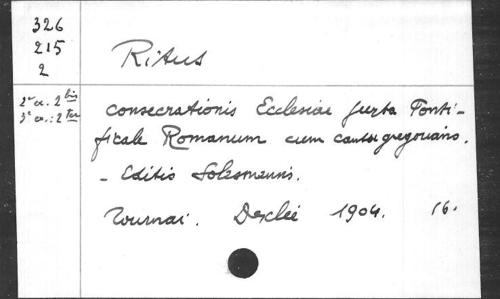 326
215
2
Ritus
2e ex. 2 bis
3e ex.: 2 ter
consecrationis Ecclesiae juxta Ponti-
ficale Romanum cum cantu gregoriano.
- Editio Solesmensi.
Tournai. Desclée 1904. 16.